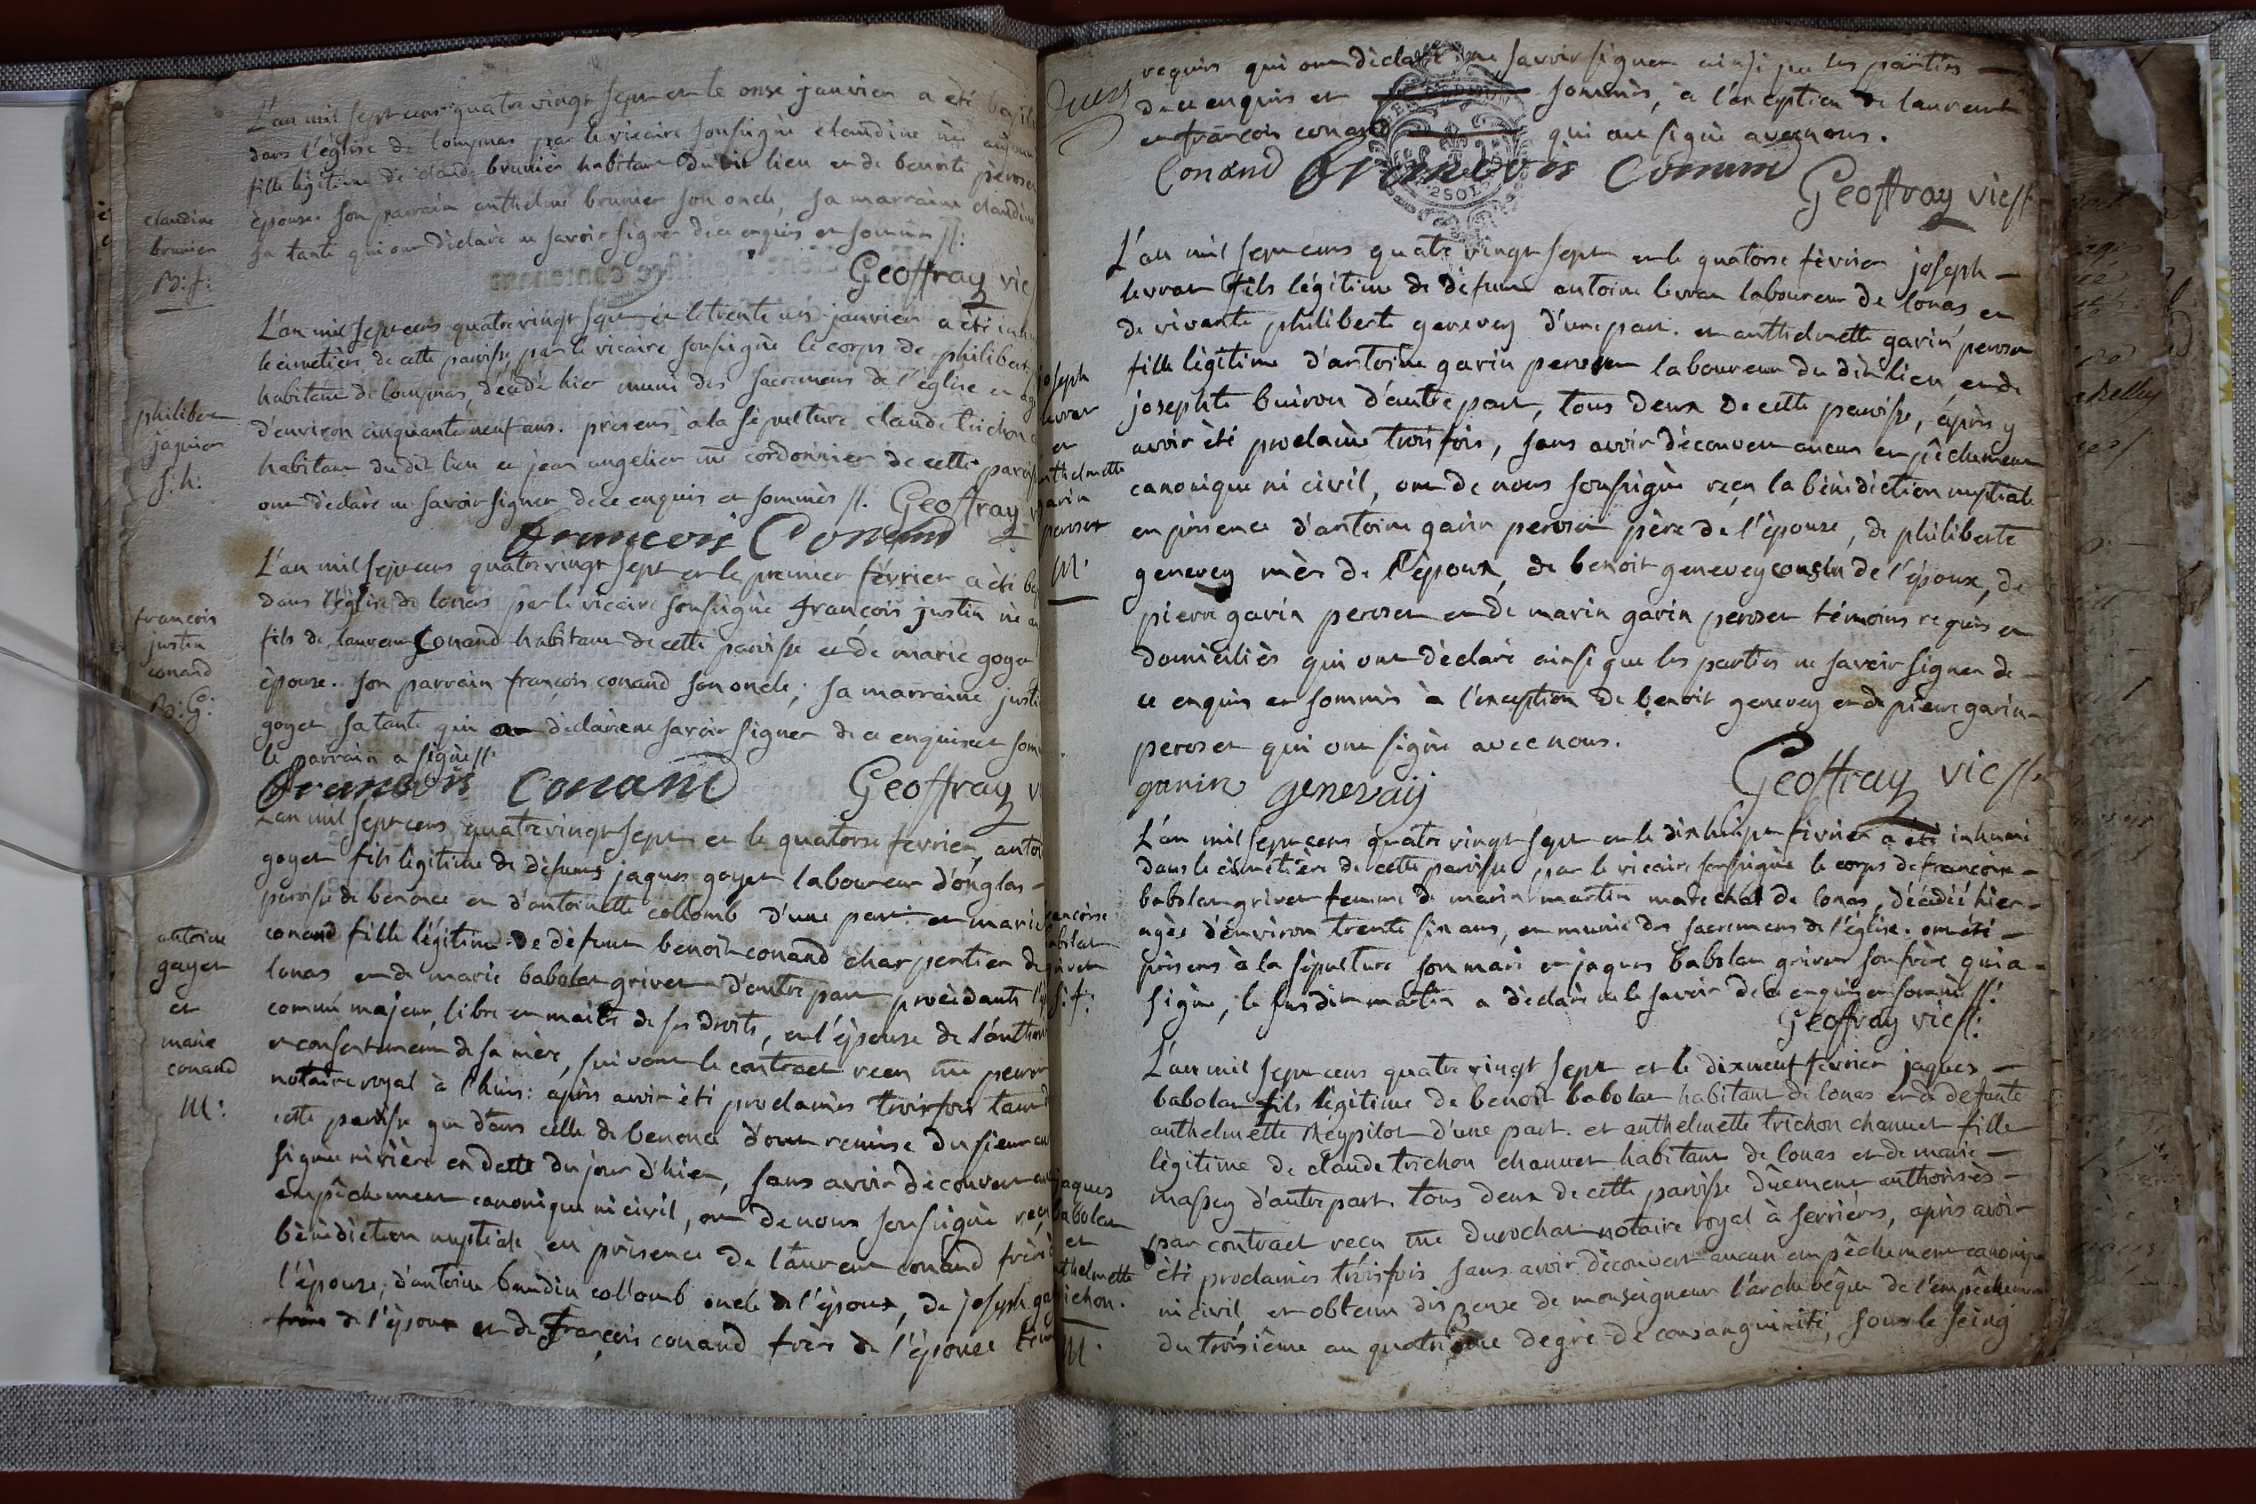 L'an mil sept cens quatre vingt sept et le onse janvier a été
dans l'église de lompnas par le vicaire soussigné claudine née
fille légitime de claude brunier habitant dudit lieu et de benoite
claudine
brunier
B: f:
épouse. son parrain anthelme brunier son oncle, sa marraine claudine
sa tante qui ont déclaré ne savoir signer de ce enquis et sommés //:
Geoffray vic
L'an mil sept cens quatre vingt sept et le trente janvier a été
le cimetière de cette paroisse par le vicaire soussigné le corps de philibert
philibert
jaquier
S: h:
habitant de lompnas, décédé hier muni des sacremens de l'église et
d'environ cinquante neuf ans. présens à la sépulture claude trichon
habitant dudit lieu et jean angelier cordonnier de cette
ont déclaré ne savoir signer de ce enquis et sommés //. Geoffray
françois Conand
L'an mil sept cens quatre vingt sept et le premier février a été
dans l'église de lonas par le vicaire soussigné françois justin né
françois
justin
conand
B: G:
fils de laurent Conand habitant de cette paroisse et de marie goyet
épouse. son parrain françois conand son oncle; sa marraine
goyet sa tante qui déclaré ne savoir signer de ce enquise et
le parrain a signé //.
françois Conand Geoffray
L'an mil sept cens quatre vingt sept et le quatorse fevrier,
goyet fils légitime de défunt jaques goyet laboureur d'onglas
paroisse de benonce et d'antoinette collomb d'une part. et marie
antoine
goyet
et
marie
conand
M:
conand fille légitime de défunt benoit conand charpentier de
lonas et de marie babolat grivet d'autre part procédants
comme majeur, libre et maitre de ses droits, et l'épouse de
et consentement de sa mère, suivant le contract recu
notaire royal à l'huis: après avoir été proclamés trois fois tant
cette paroisse que dans celle de benonce dont remise du sieur
signée rivière en datte du jour d'hier, sans avoir découvert
empêchement canonique ni civil, ont de nous soussigné reçu
bénédiction nuptiale en présence de laurent conand frère
l'épouse, d'antoine baudin collomb oncle de l'époux, de joseph
frère de l'époux et de françois conand frère de l'épouse
requis qui ont déclaré ne savoir signer ainsi que les parties
de ce enquis et sommés, à l'exception de laurent
et françois conand qui ont signé avec nous.
2 SOLS
Conand françois Conand
Geoffray vic //.
L'an mil sept cens quatre vingt sept et le quatorse février joseph
levrat fils légitime de défunt antoine levrat laboureur de lonas et
de vivante philiberte genevey d'une part. et anthelmette garin peroset
fille légitime d'antoine garin peroset laboureur du dit lieu et de
joseph
levrat
et
anthelmette
garin
peroset
M.
josephte buiron d'autre part, tous deux de cette paroisse, après y
avoir été proclamé trois fois, sans avoir découvert aucun empêchement
canonique ni civil, ont de nous soussigné reçu la bénédiction nuptiale
en présence d'antoine garin peroset père de l'épouse, de philiberte
genevey mère de l'époux, de benoit genevey cousin de l'époux, de
pierre garin peroset et de marin garin peroset témoins requis et
domiciliés qui ont déclaré ainsi que les parties ne savoir signer de
ce enquis et sommés à l'exception de benoit genevey et de pierre garin
peroset qui ont signé avec nous.
garin genevaij
Geoffray vic //.
L'an mil sept cens quatre vingt sept et le dix huit février a été inhumé
dans le cimétière de cette paroisse par le vicaire soussigné le corps de françoise
babolat grivet femme de marin martin maréchal de lonas, décédée hier
françoise
babolat
grivet
S: f:
agée d'environ trente six ans, et munie des sacremens de l'église. ont été
présens à la sépulture son mari et jaques babolat grivet son frère qui a
signé, le susdit martin a déclaré ne le savoir de ce enquis et sommé //.
Geoffray vic //.
L'an mil sept cens quatre vingt sept et le dix neuf fevrier jaques
babolat fils légitime de benoit babolat habitant de lonas et de defunte
anthelmette Reypilot d'une part. et anthelmette trichon chanuet fille
légitime de claude trichon chanuet habitant de lonas et de marie
massey d'autre part. tous deux de cette paroisse dûement authorisés
jaques
babolat
et
anthelmette
trichon.
M.
par contract recu me durochat notaire royal à serrières, après avoir
été proclamés trois fois sans avoir découvert aucun empêchement canonique
ni civil, et obtenu dispense de monseigneur l'archevêque de l'empêchement
du troisième au quatrième degré de consanguinité, sous le seing